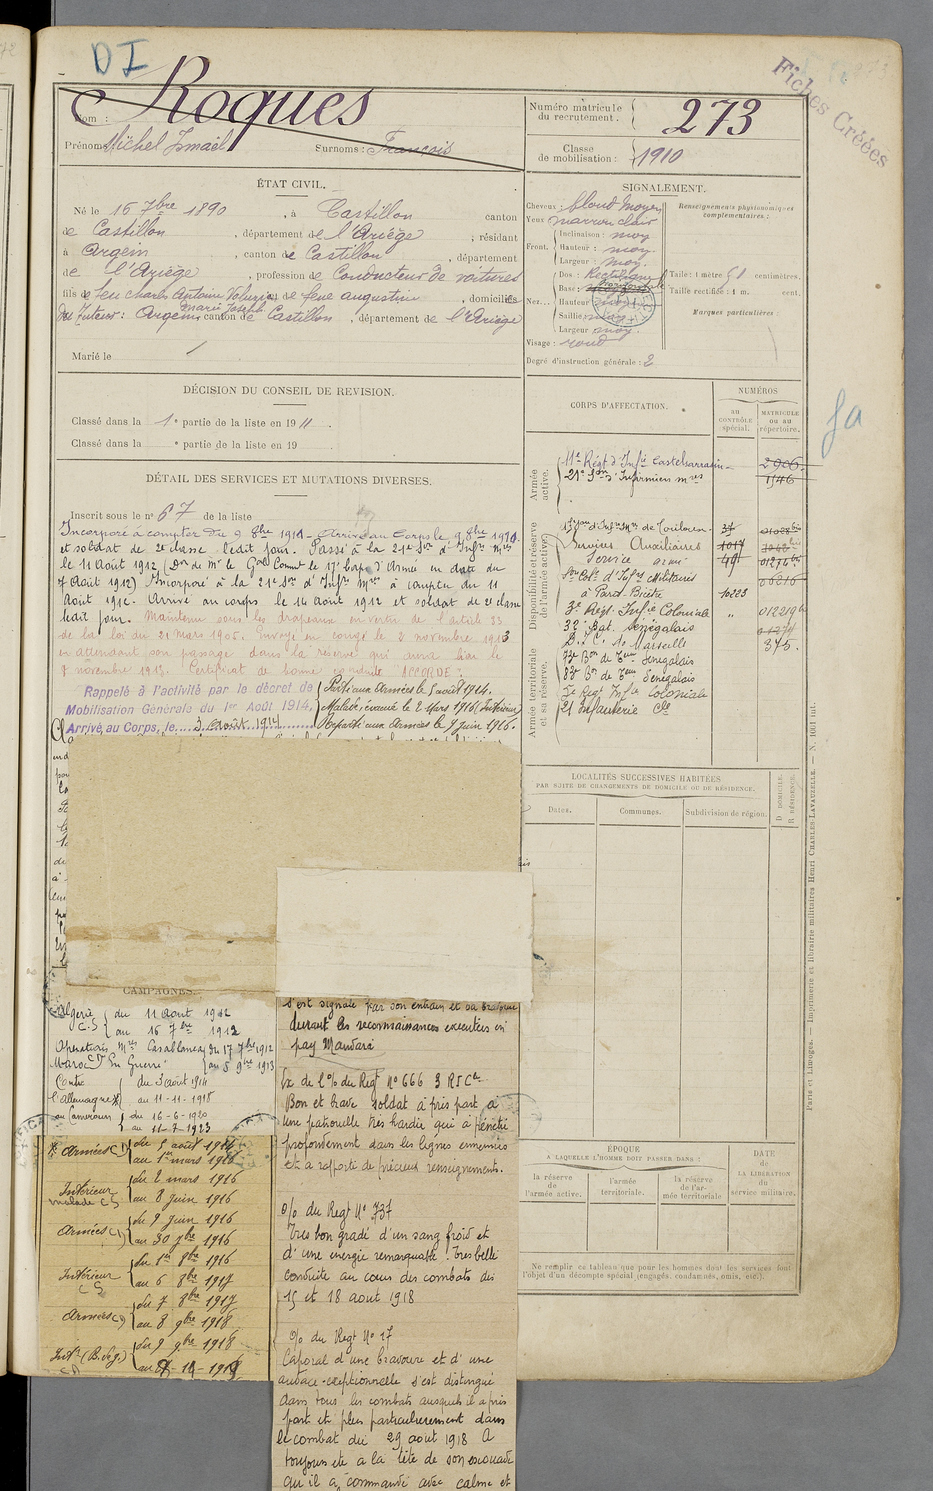 D I
Fiches Créées
Nom : Roques
Prénoms Michel Ismaël Surnoms : François
Numéro matricule du recrutement. 273
Classe de mobilisation : 1910
ÉTAT CIVIL.
Né le 16 7bre 1890, à Castillon canton
de Castillon, département de l'Ariège, résidant
à Argein, canton de Castillon, département
de l'Ariège, profession de Conducteur de voitures
fils de feu Charles Antoine et de feue Augustine, domiciliés
Marie Joseph
Tuteur : Argein canton de Castillon, département de l'Ariège
Marié le
SIGNALEMENT.
Cheveux : blond moyen
Yeux marron clair
Front. Inclinaison : moy
Hauteur : moy.
Largeur : moy.
Nez... Dos : Rectiligne
Base :
Hauteur
Saillie
Largeur moy.
Visage : rond
Degré d'instruction générale : 2
Renseignements physionomiques complémentaires :
Taille : 1 mètre 61 centimètres.
Taille rectifiée : 1 m. cent.
Marques particulières :
DÉCISION DU CONSEIL DE REVISION.
Classé dans la 1e partie de la liste en 1911
Classé dans la e partie de la liste en 19
DÉTAIL DES SERVICES ET MUTATIONS DIVERSES.
Inscrit sous le no 67 de la liste
Incorporé à compter du 9 8bre 1911 Arrivé au Corps le 9 8bre 1911
et soldat de 2e classe ledit jour. Passé à la 21e Son d'Infrs Mres
le 11 Août 1912 (Don de Mr le Gral Commt le 17e Corps d'Armée en date du
7 Août 1912) Incorporé à la 21e Son d'Infrs Mres à compter du 11
Août 1912. Arrivé au corps le 14 Août 1912 et soldat de 2e classe
ledit jour. Maintenu sous les drapeaux en vertu de l'article 33
de la loi du 21 Mars 1905. Envoyé en congé le 2 novembre 1913
en attendant son passage dans la réserve qui aura lieu le
8 novembre 1913. Certificat de bonne conduite "ACCORDÉ".
Rappelé à l'activité par le décret de
Mobilisation Générale du 1er Août 1914,
Arrivé au Corps, le 3 Août 1914
Parti aux Armées le 5 août 1914.
Malade, évacué le 2 Mars 1916 (Intérieur)
Reparti aux Armées le 9 Juin 1916.
CORPS D'AFFECTATION.
NUMÉROS
au contrôle spécial.
matricule ou au répertoire.
Armée active.
11e Régt d'Infie Castelsarrasin 2906
21e Son d'Infirmiers mres 1546
Disponibilité et réserve de l'armée active.
de Toulouse
Services Auxiliaires 1017
Service armé 49
Son Cole d'Infrs Militaires 06216
à Parot-Brière 10223
3e Régt. Infie Coloniale " 012219
32e Bat. Sénégalais
D.I.C. 1. Marseille 375.
Armée territoriale et sa réserve.
73e Bon de Teurs Sénégalais
83e Bon de Teurs Sénégalais
Régt Infie Coloniale
21 Infanterie Cle
ga
LOCALITÉS SUCCESSIVES HABITÉES
PAR SUITE DE CHANGEMENTS DE DOMICILE OU DE RÉSIDENCE.
Dates. Communes. Subdivision de région. D. DOMICILE. R. RÉSIDENCE.
CAMPAGNES.
Algérie C.S. du 11 Aout 1912
au 16 7bre 1912
Opérations Mres Casablanca du 17 7bre 1912
Maroc En Guerre au 5 9bre 1913
Contre l'Allemagne du 3 août 1914
au 11-11-1918
au Cameroun du 16-6-1920
au 11-7-1923
Armées du 5 août 1914
au 1er mars 1916
Intérieur malade CS du 2 mars 1916
au 8 juin 1916
Armées du 9 Juin 1916
au 30 7bre 1916
Intérieur CS du 1er 8bre 1916
au 6 8bre 1917
Armées du 7 8bre 1917
au 8 9bre 1918
Intr du 9 9bre 1918
s'est signalé par son entrain et sa bravoure
durant les reconnaissances exécutées en
pays Mandara
Ex. de l'O/ du Regt No 666 3 RICce
Bon et brave soldat à pris part à
une patrouille très hardie qui à pénétré
profondément dans les lignes ennemies
et a rapporté de précieux renseignements.
O/ du Regt No 737
Très bon gradé d'un sang froid et
d'une énergie remarquable. Très belle
conduite au cours des combats des
15 et 18 aout 1918
O/ du Regt No 17
Caporal d'une bravoure et d'une
audace exceptionnelle s'est distingué
dans tous les combats auxquels il a pris
part et plus particulièrement dans
le combat du 29 aout 1918 A
toujours été à la tête de son escouade
qu'il a commandé avec calme et
ÉPOQUE
A LAQUELLE L'HOMME DOIT PASSER DANS :
la réserve de l'armée active.
l'armée territoriale.
la réserve de l'armée territoriale
DATE DE LA LIBÉRATION du service militaire.
Ne remplir ce tableau que pour les hommes dont les services font
l'objet d'un décompte spécial (engagés, condamnés, omis, etc.).
Paris et Limoges. — Imprimerie et librairie militaires Henri CHARLES-LAVAUZELLE. — N. 1001 int.